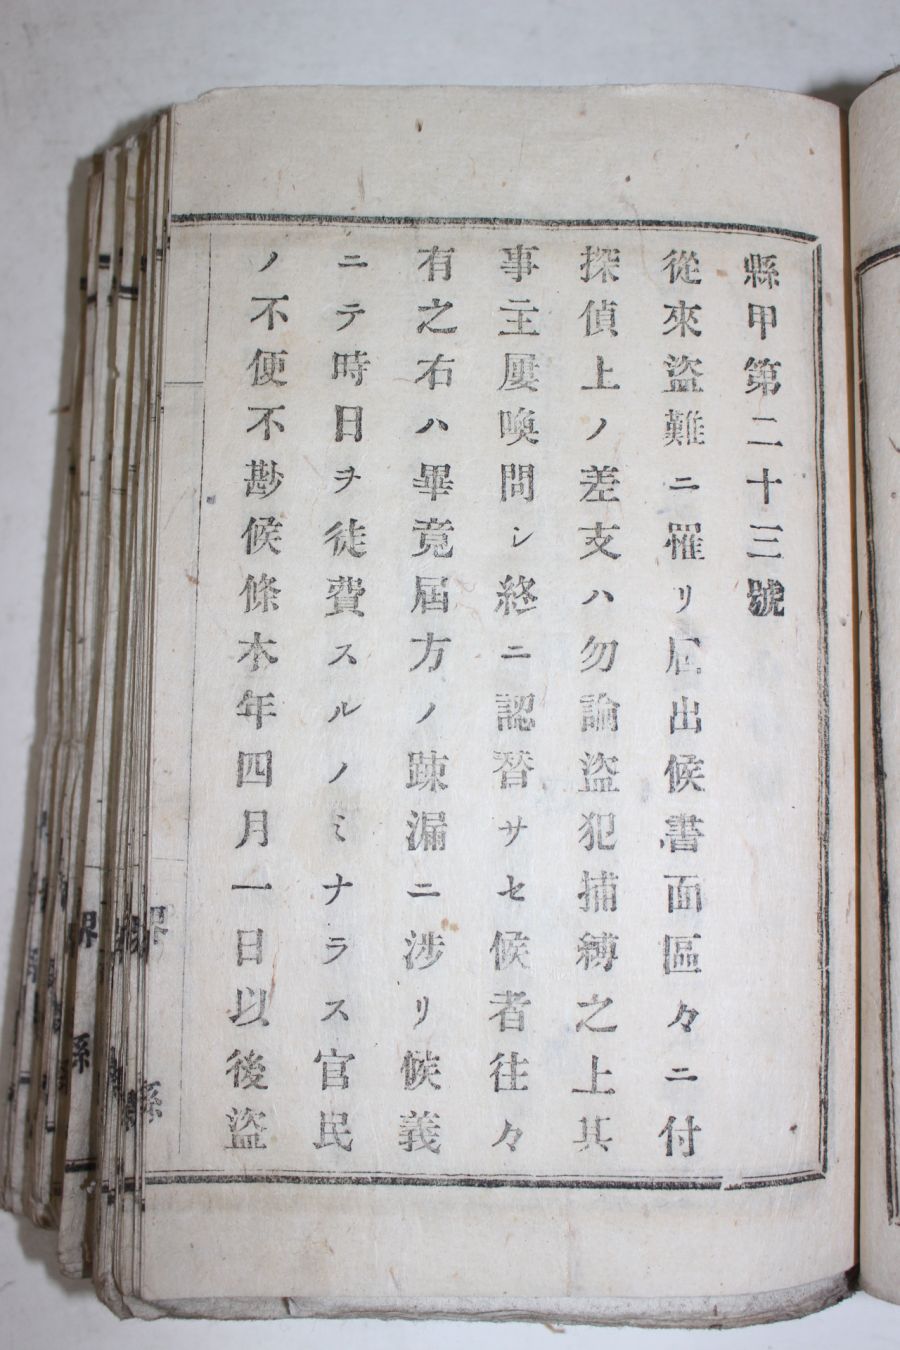 縣甲第二十三號
從來盜難ニ罹リ屆出候書面區々ニ付
探偵上ノ差支ハ勿論盜犯捕縛之上其
事主屢喚問シ終ニ認替サセ候者往々
有之右ハ畢竟屆方ノ疎漏ニ涉リ候義
ニテ時日ヲ徒費スルノミナラス官民
ノ不便不尠候條本年四月一日以後盜